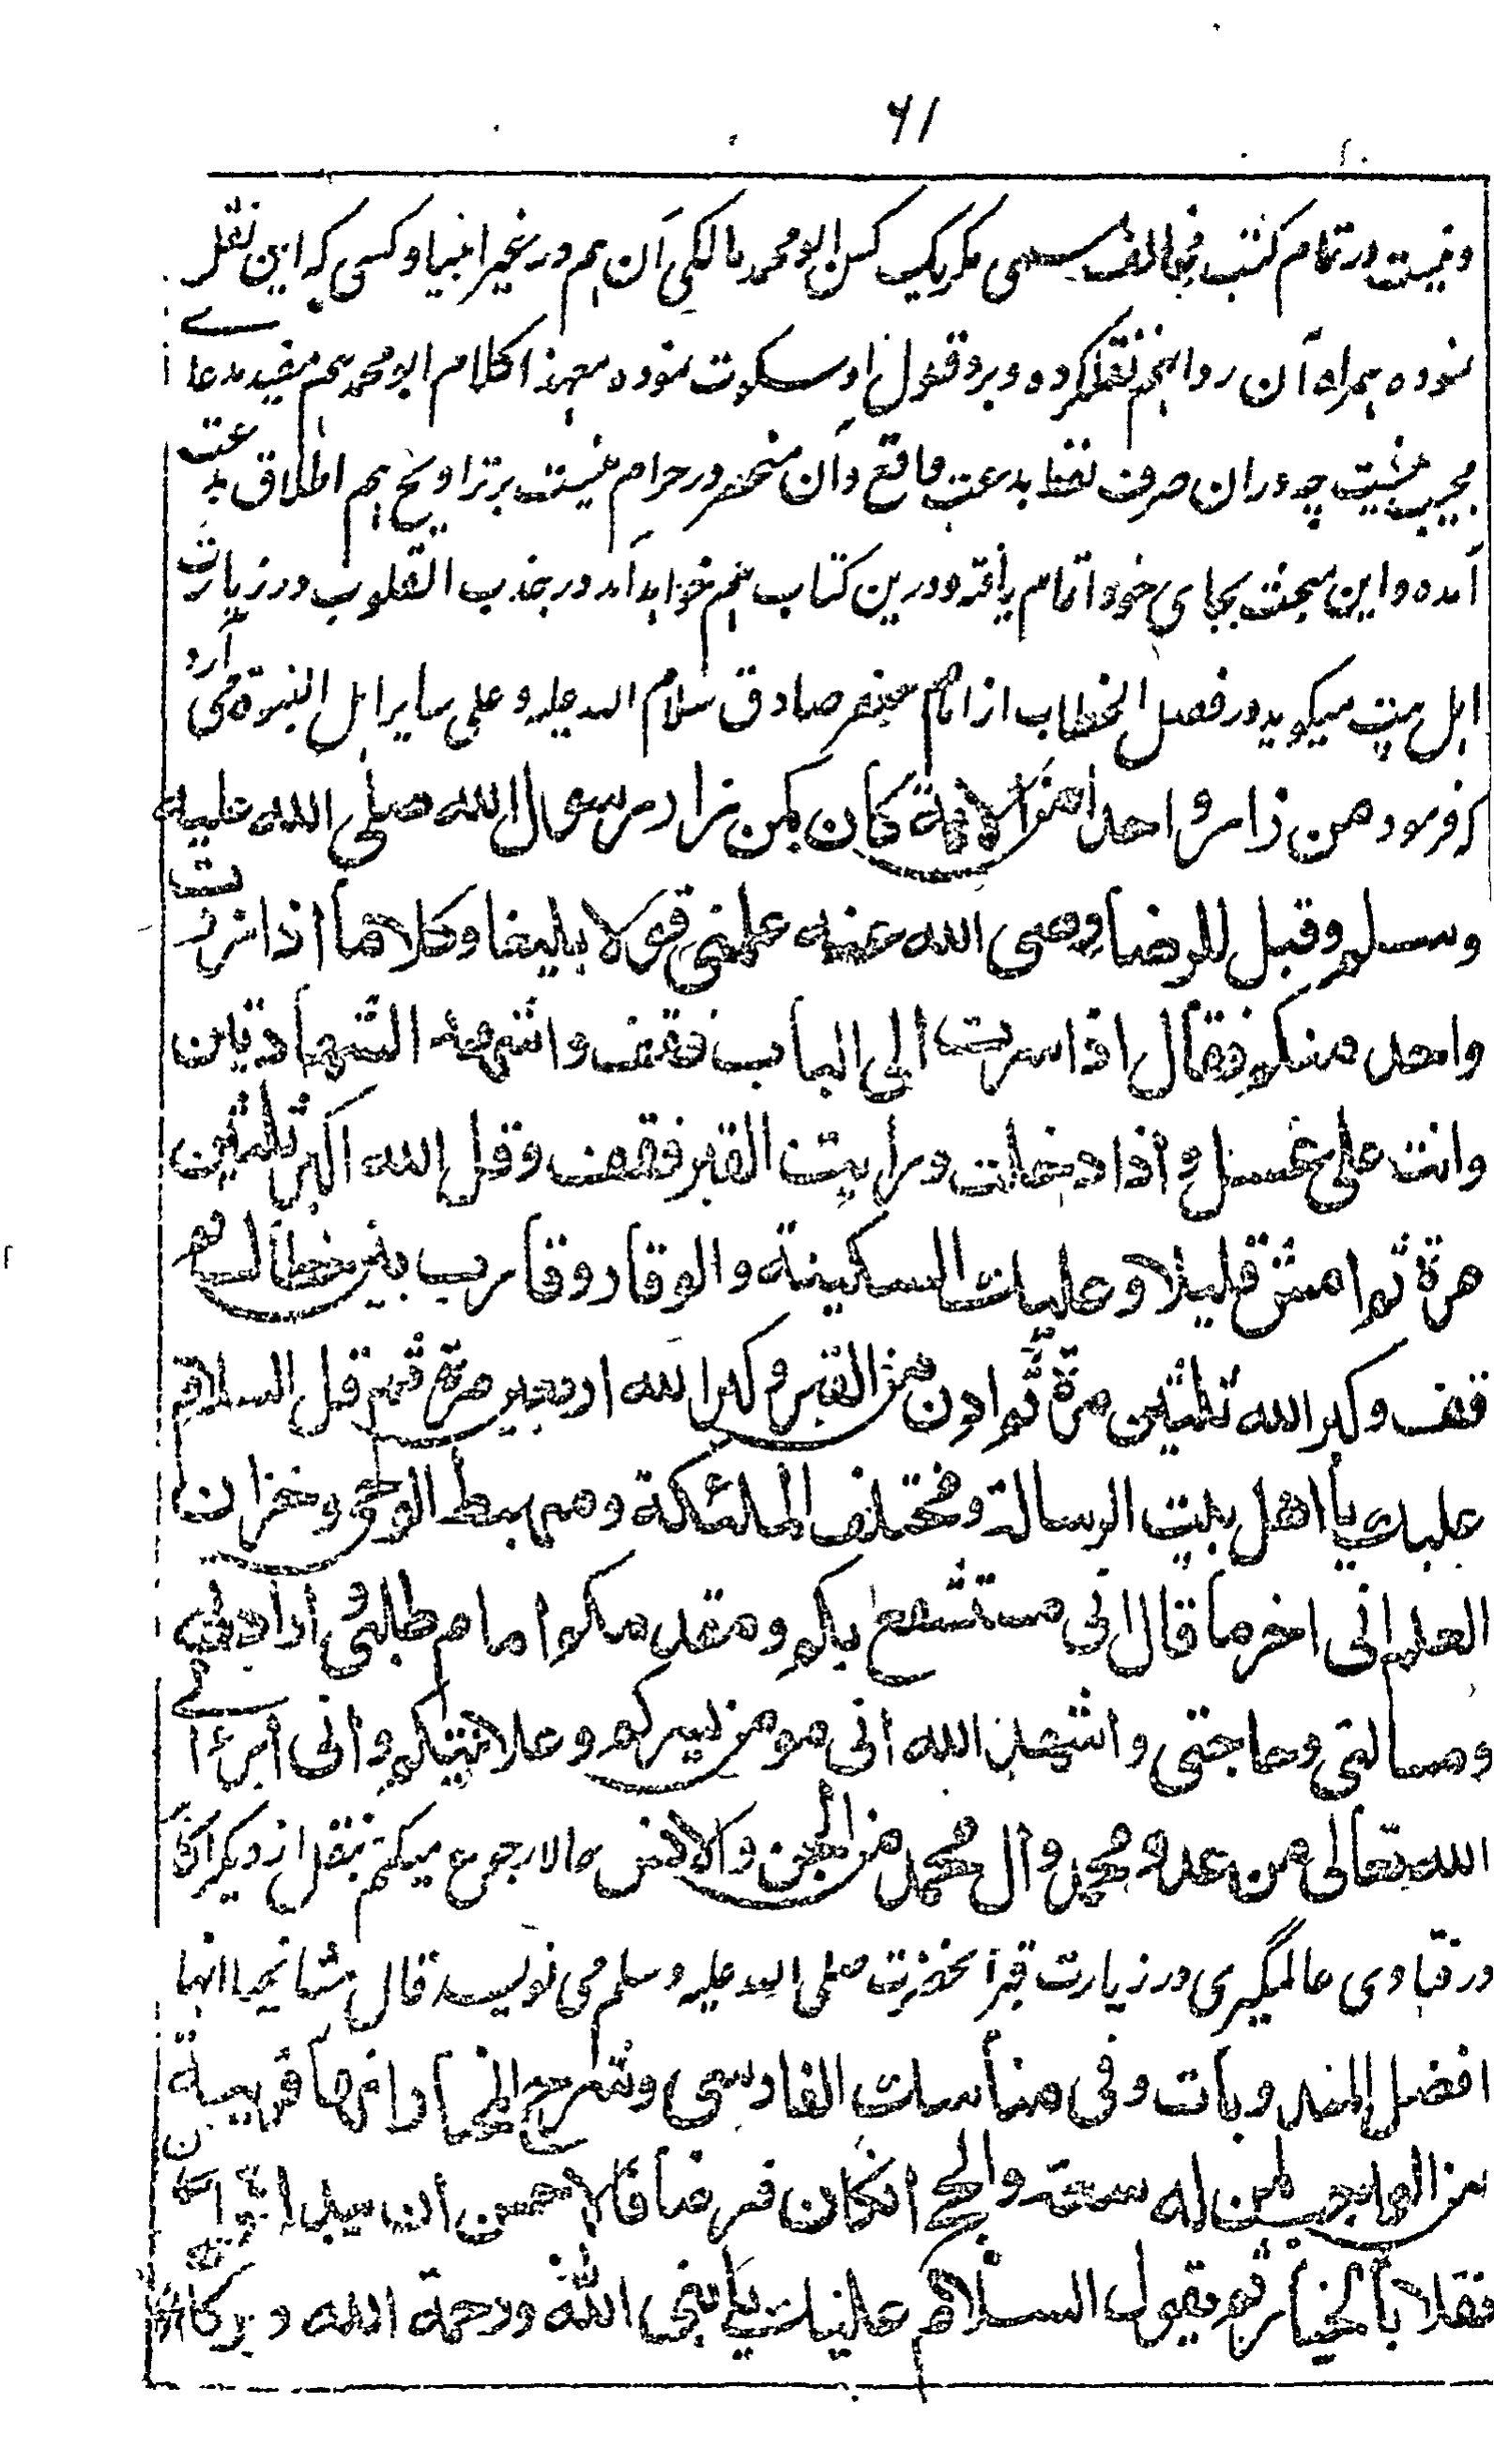 ۶۱
ونیست در تمام کتب مخالف مگر یک کس ابو محمد مالکی آن هم در غیر انبیا و کسی که این نقل
نموده همراه آن رد ابنهم نقل کرده و برد قول او سکوت نموده معهذا کلام ابو محمد هم مفید مدعاے
مجیب نیست چه دران صرف لفظ بدعت واقع و آن منحصر در حرام نیست بر تراویح هم اطلاق بدعت
آمده و این مبحث بجای خود اتمام یافته و درین کتاب هم خواهد آمد در جذب القلوب در زیارت
اهل بیت میگوید در فصل الخطاب از امام جعفر صادق سلام الله علیه و علی سایر اهل النبوة می آرد
که فرمود من زار واحدا من الائمة کان کمن زار رسول الله صلی الله علیه
وسلم وقیل للرضا رضی الله عنه علمنی قولا بلیغا وکلاما اذا زرت
واحد منکم فقال اذا سرت الی الباب فقف واشهد الشهادتین
وانت علی غسل و اذا دخلت ورایت القبر فقف وقل الله اکبر ثلثین
مرة ثم امش قلیلا وعلیک السکینة والوقار وقارب بین خطاک ثم
قف وکبر الله ثلثین مرة ثم ادن من القبر وکبر الله اربعین مرة ثم قل السلام
علیک یا اهل بیت الرسالة ومختلف الملئکة ومهبط الوحی وخزان
العلم انی اخر ما قال انی مستشفع بکم ومقدمکم امام طلبی و ارادتی
ومسالتی وحاجتی واشهد الله انی مومن بسرکم وعلانیتکم وانی ابرء الے
الله تعالی من عدو محمد و ال محمد من الجن والانس حالا رجوع میکنم بنقل از دیگر اکابر
در فتاوی عالمگیری در زیارت قبر آنحضرت صلی الله علیه وسلم می نویسد قال مشایخنا انها
افضل المندوبات وفی مناسک الفارسی وشرح المختار انها قریبة
من الواجب لمن له سعة والحج انکان فرضا فالاحسن ان یبدا به
فقلا بالخیار ثم یقول السلام علیک یا نبی الله ورحمة الله وبرکاته